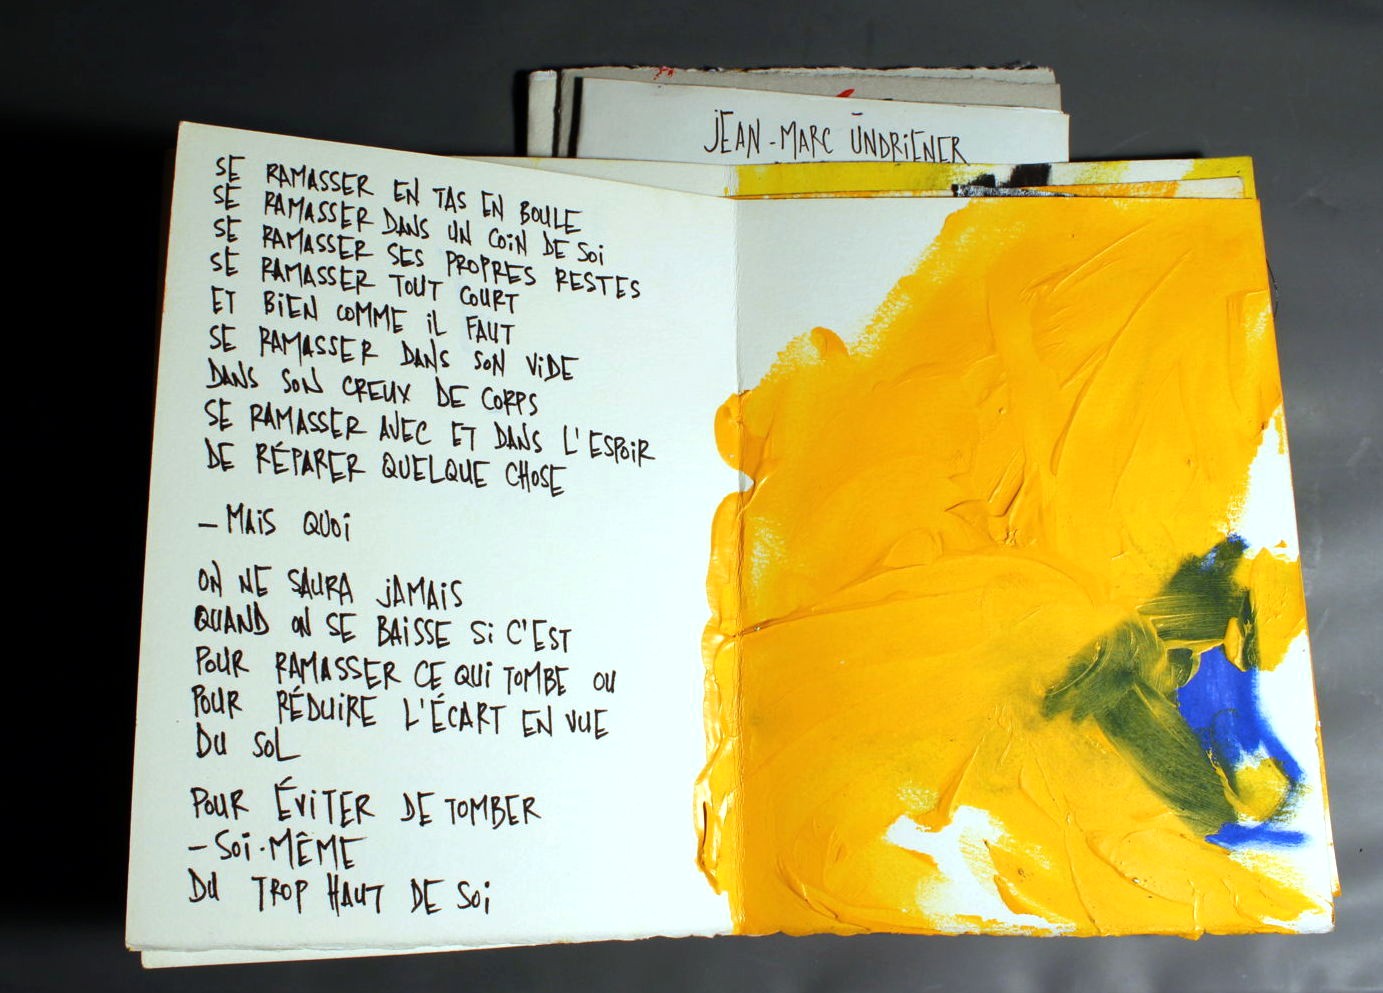 JEAN-MARC UNDRIENER
SE RAMASSER EN TAS EN BOULE
SE RAMASSER DANS UN COIN DE SOI
SE RAMASSER SES PROPRES RESTES
SE RAMASSER TOUT COURT
ET BIEN COMME IL FAUT
SE RAMASSER DANS SON VIDE
DANS SON CREUX DE CORPS
SE RAMASSER AVEC ET DANS L'ESPOIR
DE RÉPARER QUELQUE CHOSE
– MAIS QUOI
ON NE SAURA JAMAIS
QUAND ON SE BAISSE SI C'EST
POUR RAMASSER CE QUI TOMBE OU
POUR RÉDUIRE L'ÉCART EN VUE
DU SOL
POUR ÉVITER DE TOMBER
– SOI-MÊME
DU TROP HAUT DE SOI